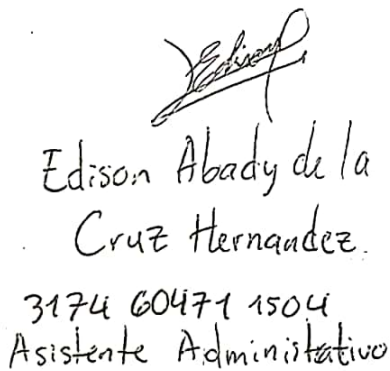 Edison
Edison Abady de la
Cruz Hernandez.
3174 60471 1504
Asistente Administrativo